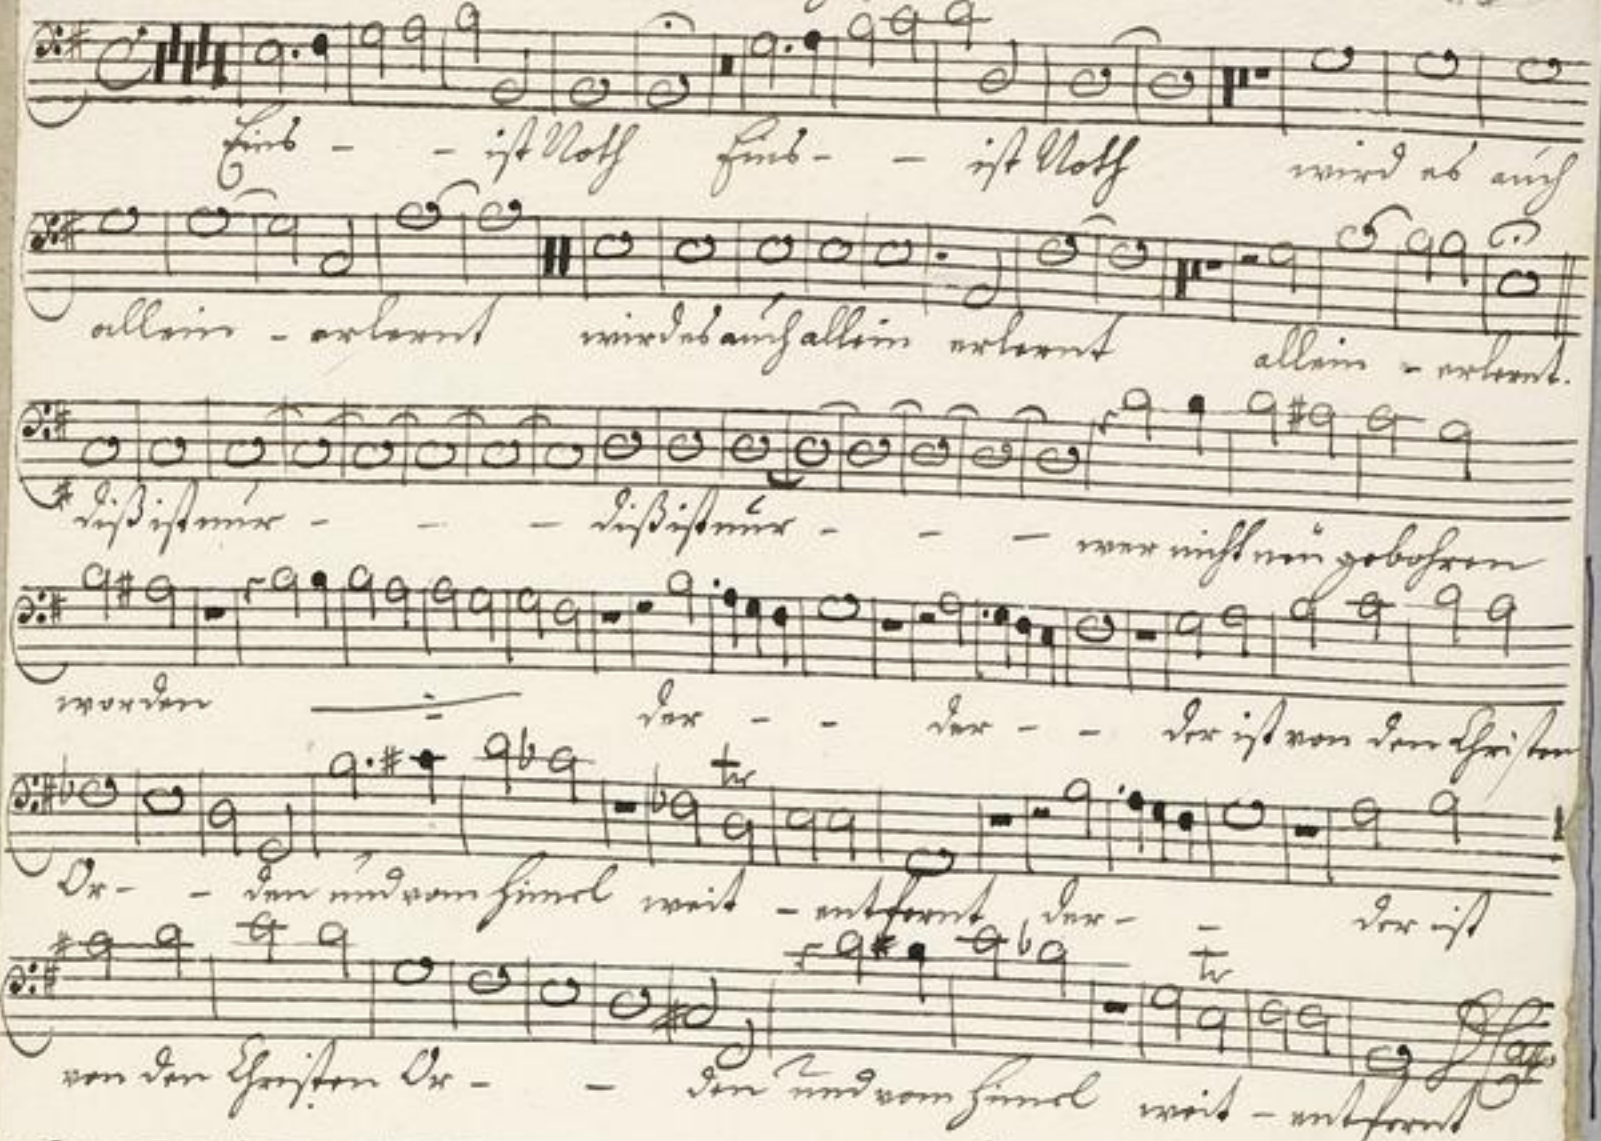 Eins - - ist Noth Eins - - ist Noth wird es auch
allein - erlernt wird es auch allein erlernt allein - erlernt.
diß ist nur - - - diß ist nur - - - wer nicht neu gebohren
worden der - - der - - der ist von dem Christen
Or - - den und vom Himel weit - entfernt, der - - der ist
von den Christen Or - - den und vom Himel weit - entfernt